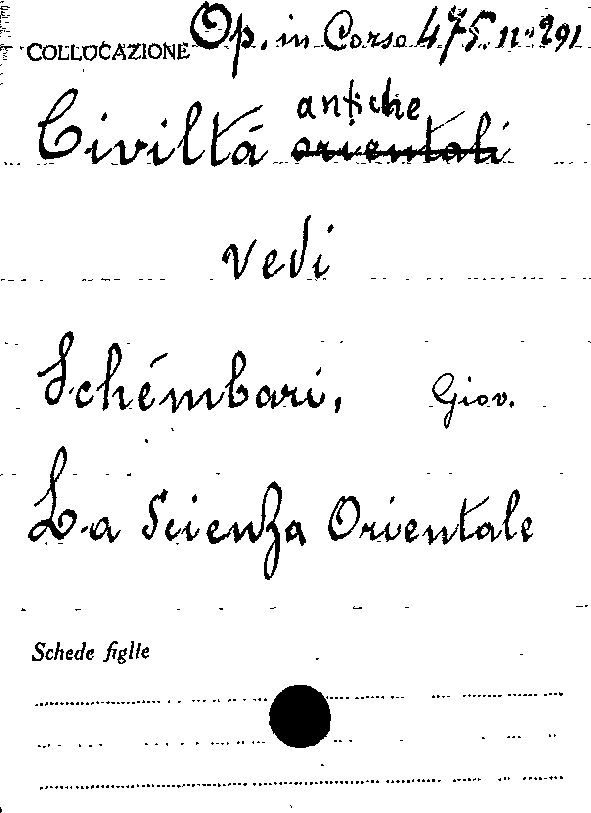 COLLOCAZIONE Op. in Corso 475. n° 291
Civiltá antiche orientali
vedi
Schémbari, Giov.
La Scienza Orientale
Schede figlie